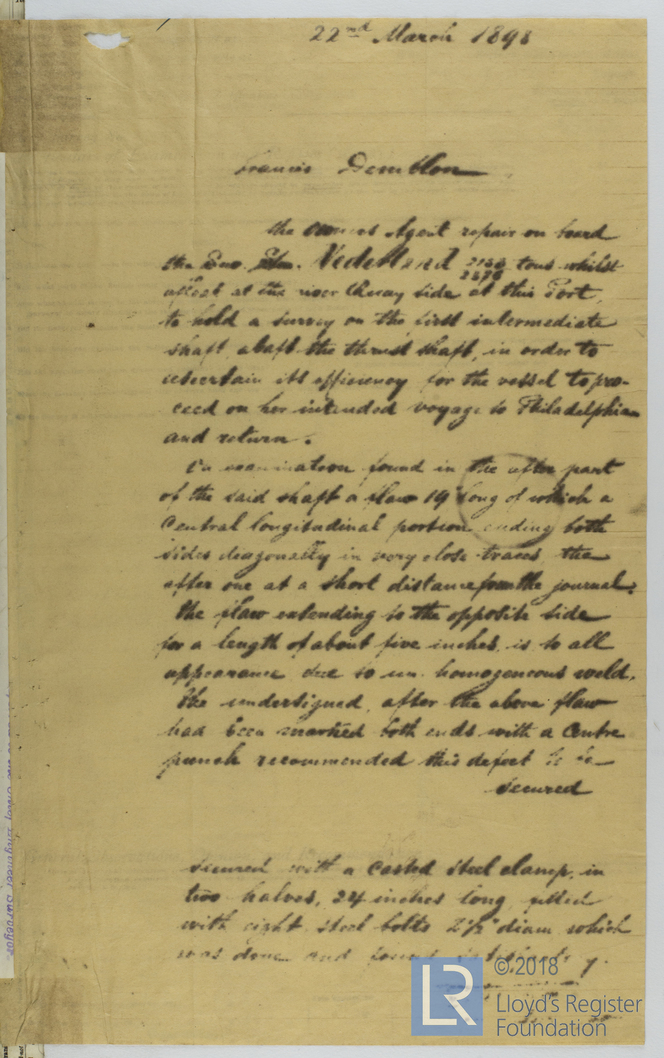 22nd March 1898
Francis Demblon
the owners Agent repair on board
the Vedettland 2756 tons whilst
afloat at the river Quay side at this Port,
to hold a survey on the first intermediate
shaft, abaft the thrust shaft, in order to
ascertain its efficiency for the vessel to pro-
ceed on her intended voyage to Philadelphia
and return.
On examination found in the after part
of the said shaft a flaw 19" long of which a
Central longitudinal portion ending both
sides diagonally in very close traces the
after one at a short distance from the journal.
The flaw extending to the opposite side
for a length of about five inches, is to all
appearance due to un-homogeneous weld.
The undersigned, after the above flaw
had been marked both ends with a Centre
punch recommended this defect to be
secured
secured with a casted steel clamp, in
two halves, 24 inches long, fitted
with eight steel bolts 2½" diam which
was done and found
©2018
LR
Lloyd's Register
Foundation